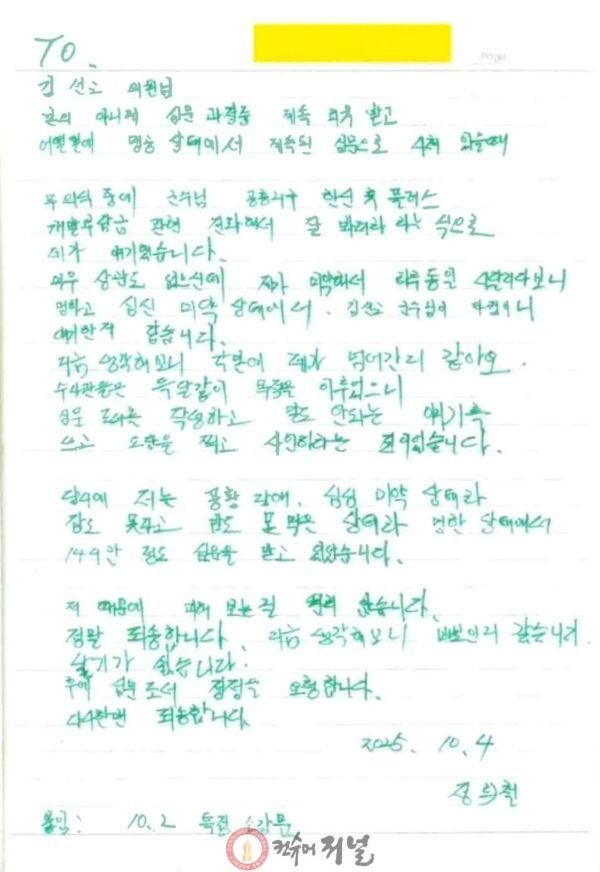 TO.
김선교 의원님
본의 아니게 심문 과정중 계속 회유 받고
어떨결에 멍한 상태에서 계속된 심문으로 4회 있을때
무의식 중에 군수님 공흥지구 한신 휴 플러스
개발부담금 관련 전화해서 잘 봐줘라 라는 식으로
제가 얘기했습니다.
아무 상관도 없으신데 제가 미약해서 하루 동안 시달리다보니
멍하고 심신 미약 상태에서 김선교 군수님이라 하였으니
얘기한거 같습니다.
지금 생각해보니 각본에 제가 넘어간거 같아요.
수사관들은 목적을 이루었으니
심문 조서를 작성하고 말도 안되는 얘기를
쓰고 도장을 찍고 사인하라는 것이었습니다.
당시에 저는 공황장애, 심신 미약 상태라
잠도 못자고 밥도 못 먹은 상태라 멍한 상태에서
14시간 정도 심문을 받고 있었습니다.
저 때문에 피해 보는걸 원치 않습니다.
정말 죄송합니다. 지금 생각해보니 바보인거 같습니다.
살기가 싫습니다.
후에 심문조서 정정을 요청합니다.
다시한번 죄송합니다.
2025. 10. 4
정희철
붙임: 10.2 특검 수감문
컨슈머저널